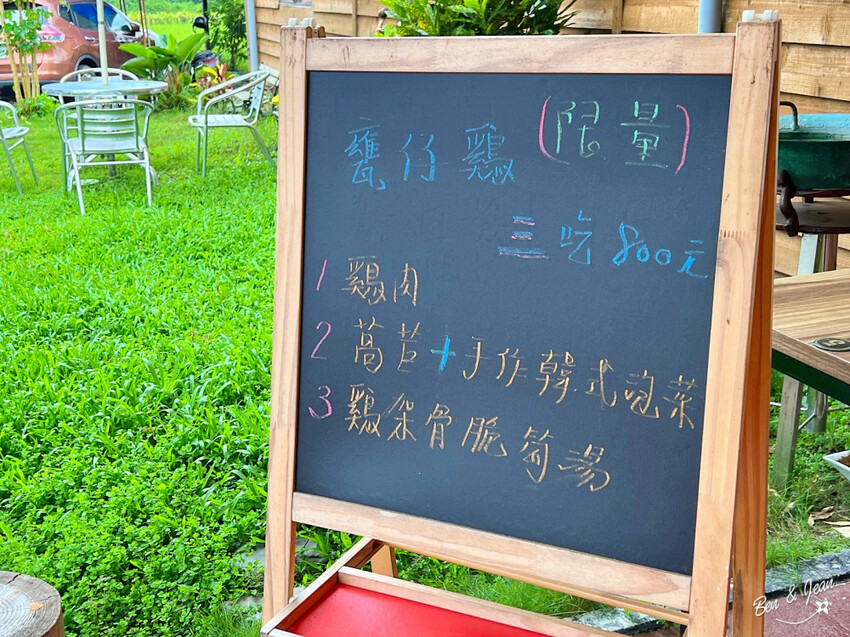 甕仔鷄 (限量)
三吃 800元
1 鷄肉
2 萵苣+手作韓式泡菜
3 鷄架骨脆筍湯
Ben & Jean